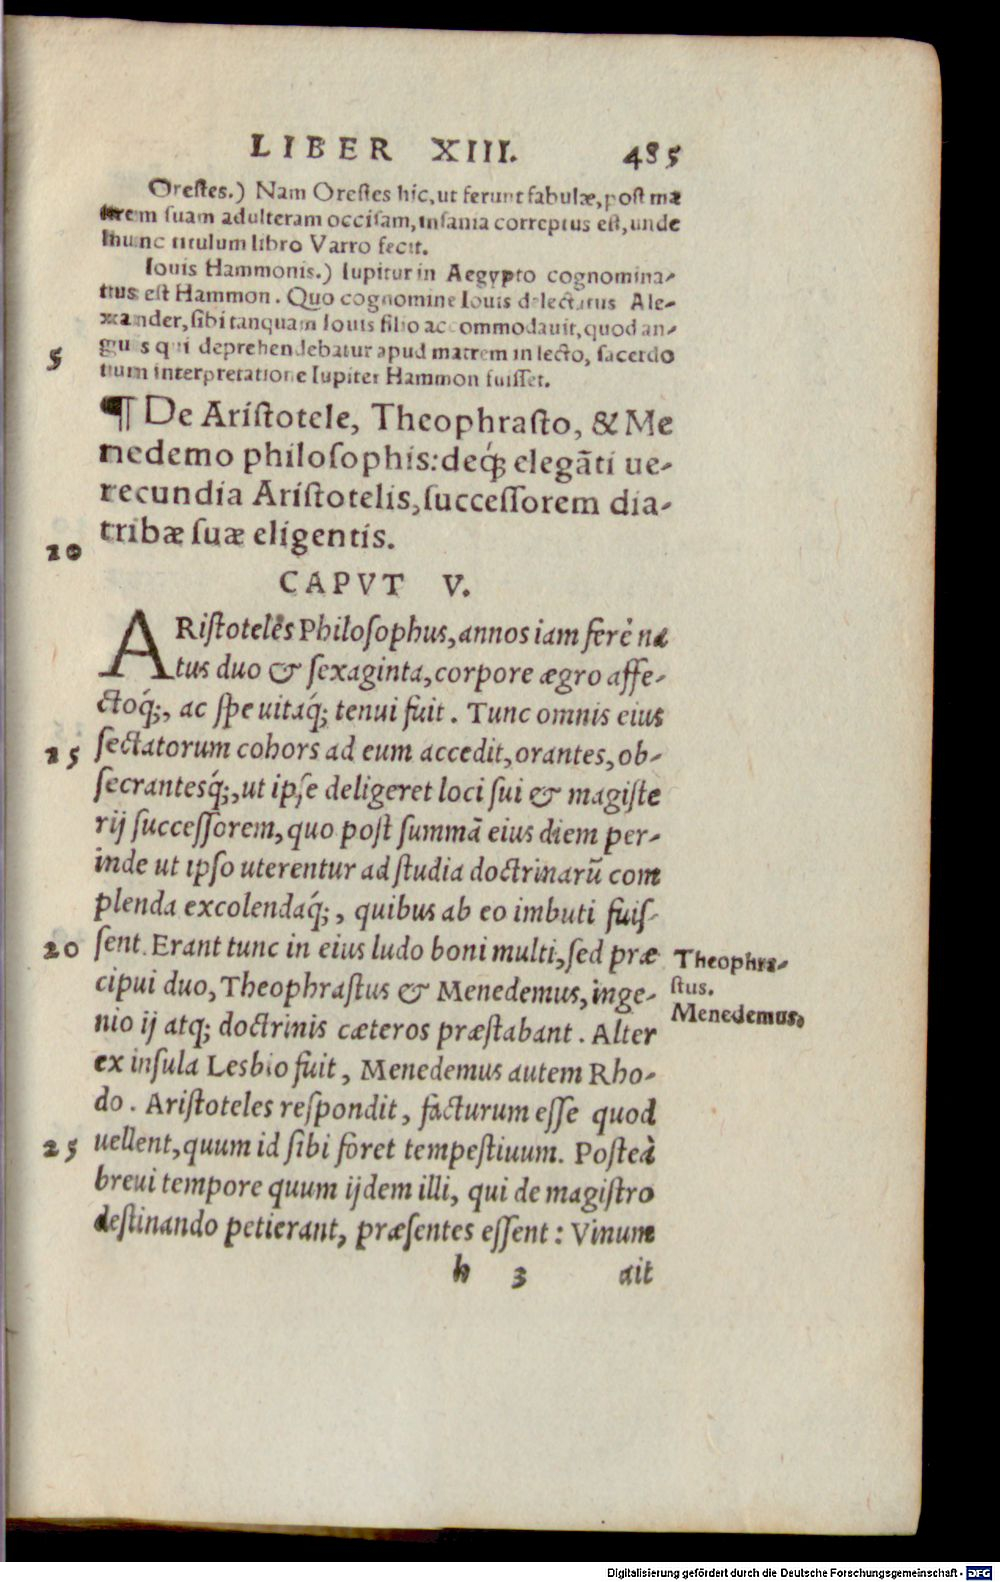 LIBER XIII. 485
Orestes.) Nam Orestes hic, ut ferunt fabulæ, post ma
trem suam adulteram occisam, insania correptus est, unde
hunc titulum libro Varro fecit.
Iouis Hammonis.) Iupitur in Aegypto cognomina-
tus est Hammon. Quo cognomine Iouis delectatus Ale-
xander, sibi tanquam Iouis filio accommodauit, quod an-
5
guis qui deprehendebatur apud matrem in lecto, sacerdo
tum interpretatione Iupiter Hammon fuisset.
¶ De Aristotele, Theophrasto, & Me
nedemo philosophis: deq́ꝫ elegãti ue-
recundia Aristotelis, successorem dia-
tribæ suæ eligentis.
20
CAPVT V.
ARistoteles Philosophus, annos iam ferè na
tus duo & sexaginta, corpore ægro affe-
ctoq́;, ac spe uitaq́; tenui fuit. Tunc omnis eius
25 sectatorum cohors ad eum accedit, orantes, ob-
secrantesq́;, ut ipse deligeret loci sui & magiste
rij successorem, quo post summã eius diem per-
inde ut ipso uterentur ad studia doctrinarũ com
plenda excolendaq́;, quibus ab eo imbuti fuis-
20 sent. Erant tunc in eius ludo boni multi, sed præ
Theophra-
cipui duo, Theophrastus & Menedemus, inge-
stus.
nio ij atq; doctrinis cæteros præstabant. Alter
Menedemus.
ex insula Lesbio fuit, Menedemus autem Rho-
do. Aristoteles respondit, facturum esse quod
25 uellent, quum id sibi foret tempestiuum. Posteà
breui tempore quum ijdem illi, qui de magistro
destinando petierant, præsentes essent: Vinum
h 3 ait
Digitalisierung gefördert durch die Deutsche Forschungsgemeinschaft - DFG